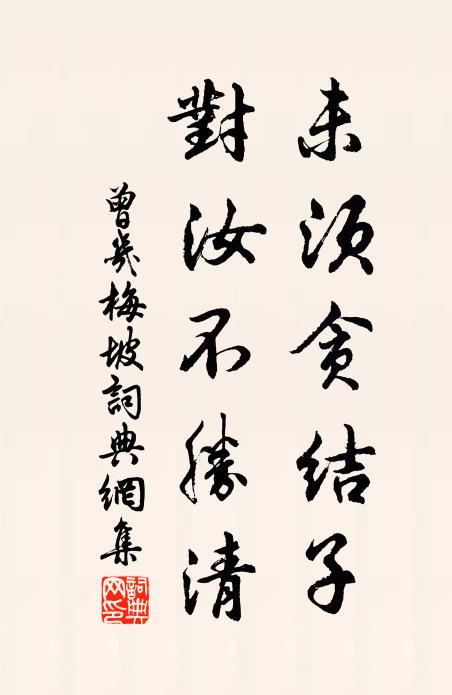 未須貪結子
對汝不勝清
曾幾梅坡詞典網集
詞典網印